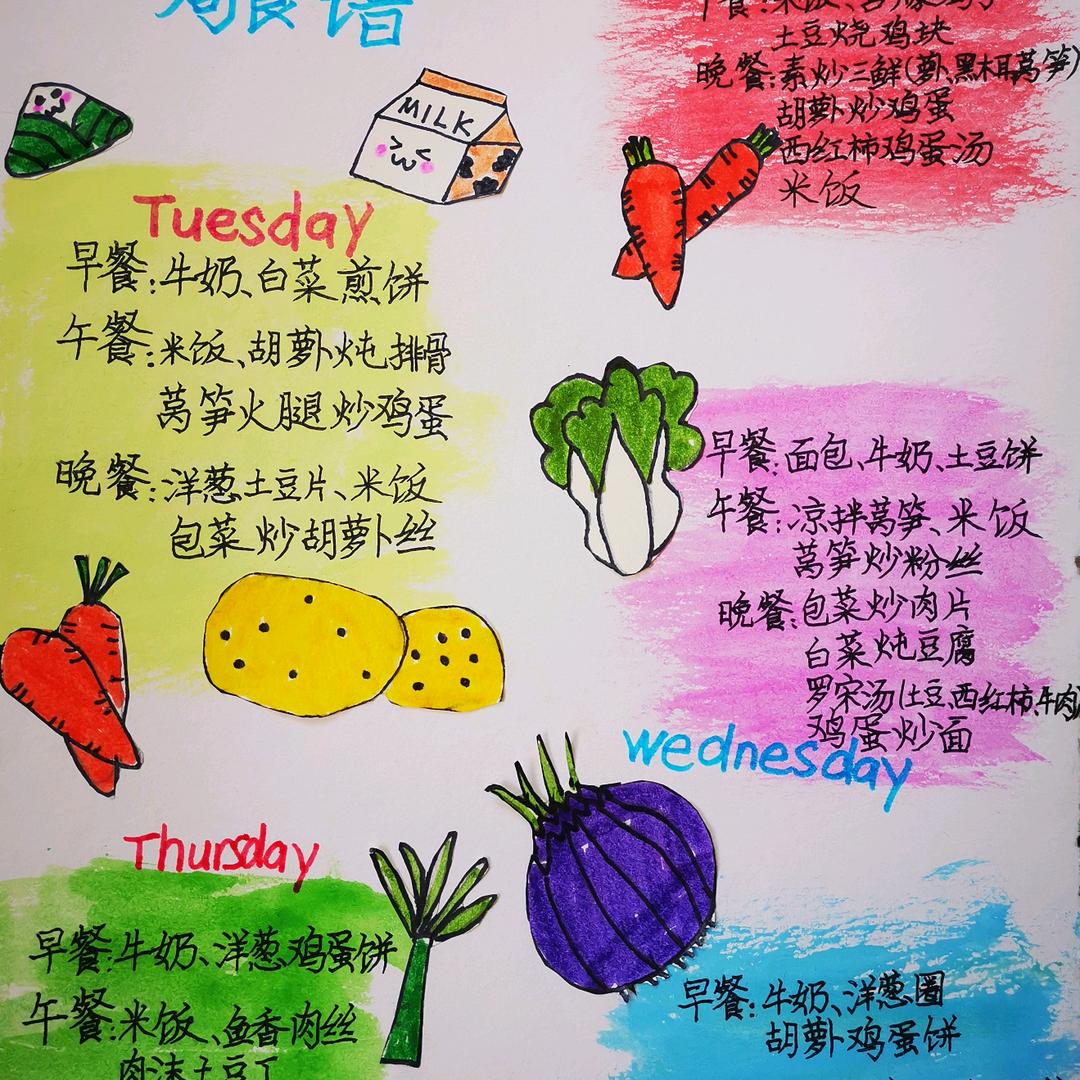 食谱
MILK
土豆烧鸡块
晚餐:素炒三鲜(萝、黑木耳莴笋)
胡萝卜炒鸡蛋
西红柿鸡蛋汤
米饭
Tuesday
早餐:牛奶、白菜煎饼
午餐:米饭、胡萝卜炖排骨
莴笋火腿炒鸡蛋
晚餐:洋葱土豆片、米饭
包菜炒胡萝卜丝
早餐:面包、牛奶、土豆饼
午餐:凉拌莴笋、米饭
莴笋炒粉丝
晚餐:包菜炒肉片
白菜炖豆腐
罗宋汤(土豆、西红柿、牛肉)
鸡蛋炒面
wednesday
Thursday
早餐:牛奶、洋葱鸡蛋饼
午餐:米饭、鱼香肉丝
肉沫土豆丁
早餐:牛奶、洋葱圈
胡萝卜鸡蛋饼